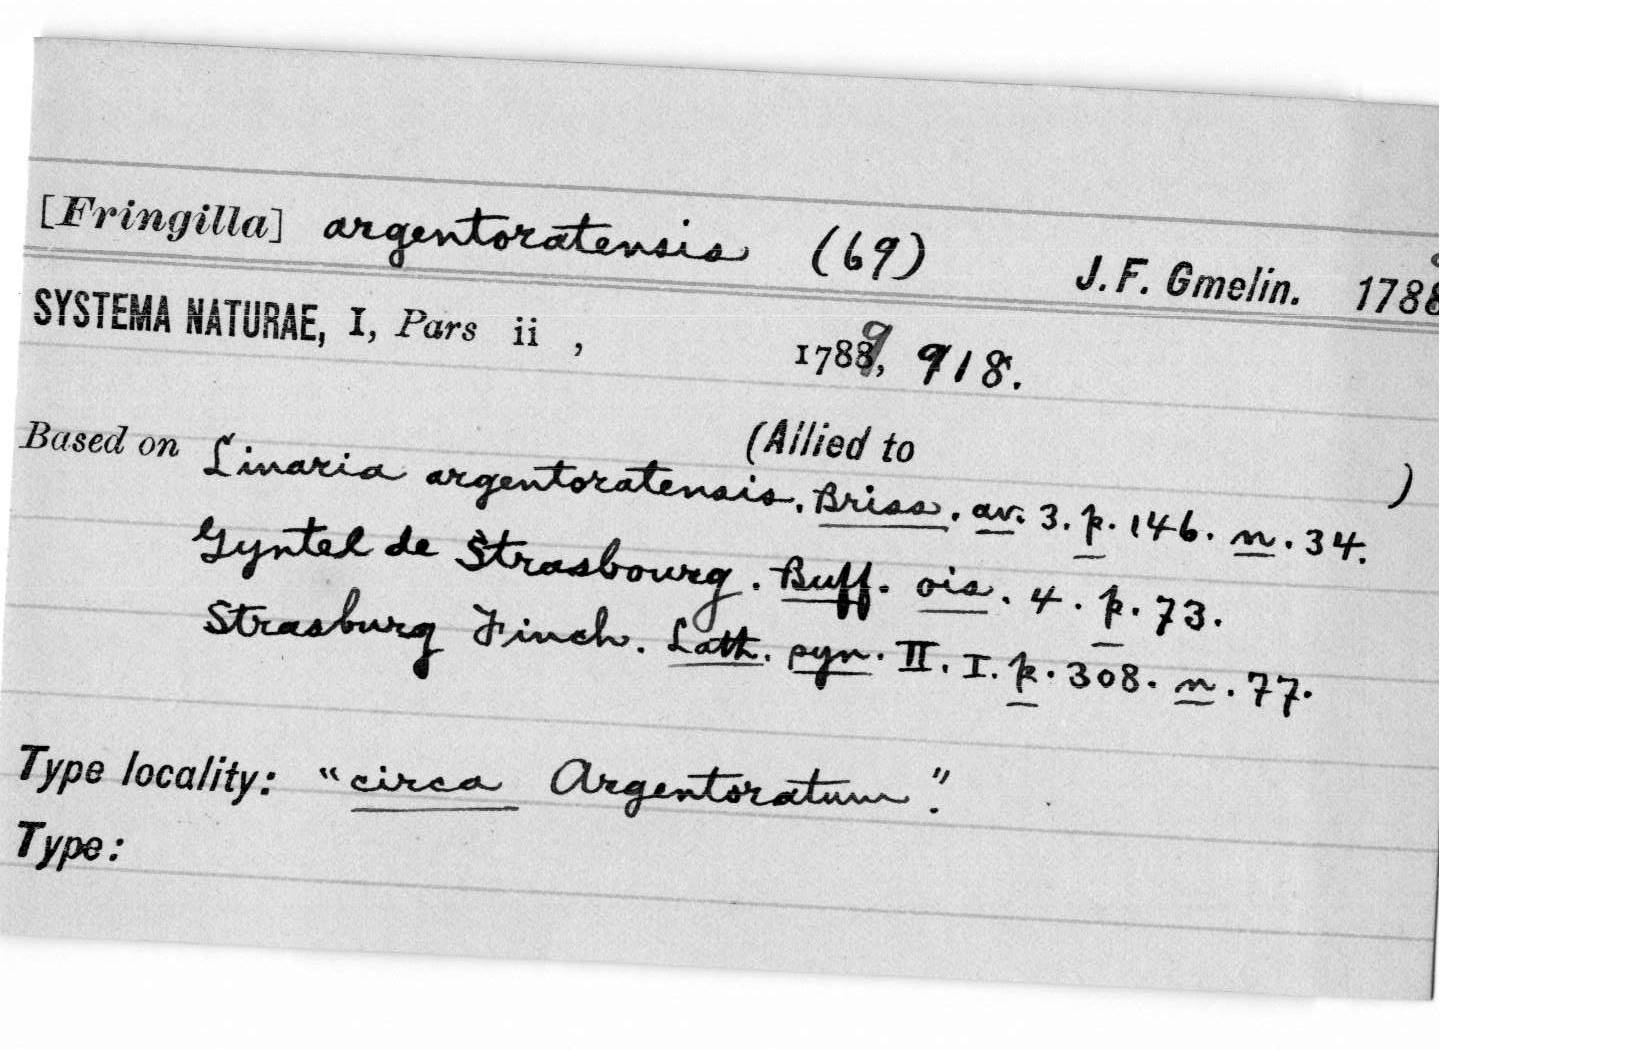 [Fringilla] argentoratensis (69) J. F. Gmelin. 1788
SYSTEMA NATURAE, I, Pars ii , 1789, 918.
(Allied to )
Based on Linaria argentoratensis. Briss. av. 3. p. 146. n. 34.
Gyntel de Strasbourg. Buff. ois. 4. p. 73.
Strasburg Finch. Lath. syn. II. I. p. 308. n. 77.
Type locality: "circa Argentoratum".
Type: